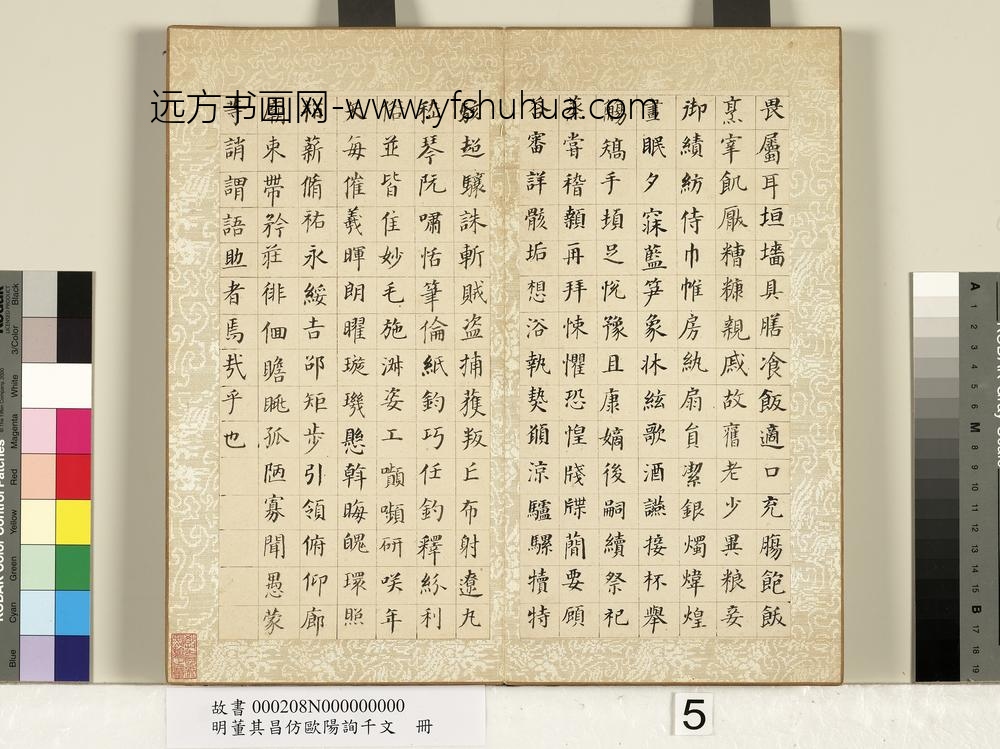 远方书画网-www.yfshuhua.com
畏屬耳垣墻具膳飡飯適口充膓飽飯
烹宰飢厭糟糠親戚故舊老少異粮妾
御績紡侍巾帷房紈扇員潔銀燭煒煌
晝眠夕寐藍笋象牀絃歌酒讌接杯舉
觴矯手頓足悅豫且康嫡後嗣續祭祀
蒸嘗稽顙再拜悚懼恐惶牋牒簡要顧
答審詳骸垢想浴執熱願涼驢騾犢特
駭超驤誅斬賊盜捕獲叛亡布射遼丸
嵇琴阮嘯恬筆倫紙鈞巧任釣釋紛利
俗並皆佳妙毛施淑姿工顰嚬研咲年
矢每催羲暉朗曜璇璣懸斡晦魄環照
指薪脩祐永綏吉邵矩步引領俯仰廊
廟束帶矜莊徘佪瞻眺孤陋寡聞愚蒙
等誚謂語助者焉哉乎也
5
故書 000208N000000000
明董其昌仿歐陽詢千文 冊
KODAK Color Control Patches
Blue
Cyan
Green
Yellow
Red
Magenta
White
3/Color
Black
A
1
2
3
4
5
6
M
8
9
10
11
12
13
14
15
B
17
18
19